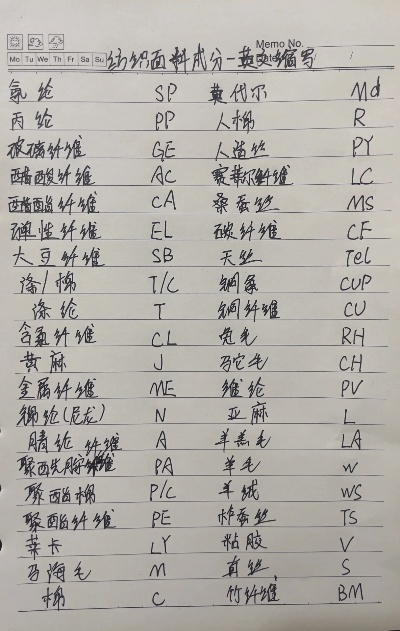 Memo No.
Mo Tu We Th Fr Sa Su
纺织面料成分-英文缩写
氨纶 SP 莫代尔 Md
丙纶 PP 人棉 R
玻璃纤维 GE 人造丝 PY
醋酸纤维 AC 赛莱尔纤维 LC
醋酯纤维 CA 桑蚕丝 MS
弹性纤维 EL 碳纤维 CF
大豆纤维 SB 天丝 Tel
涤/棉 T/C 铜氨 CUP
涤纶 T 铜纤维 CU
含氯纤维 CL 兔毛 RH
黄麻 J 马它毛 CH
金属纤维 ME 维纶 PV
锦纶(尼龙) N 亚麻 L
腈纶纤维 A 羊羔毛 LA
PA 羊毛 W
聚酯棉 P/C 羊绒 WS
聚酯纤维 PE 柞蚕丝 TS
莱卡 LY 粘胶 V
马海毛 M 真丝 S
棉 C 竹纤维 BM